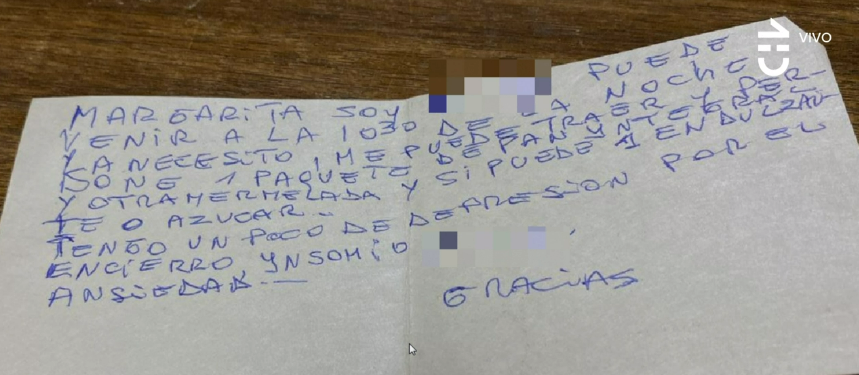 CHV VIVO
MARGARITA SOY PUEDE
VENIR A LA 1030 DE LA NOCHE
LA NECESITO, ME PUEDE TRAER Y PER-
DONE 1 PAQUETE DE PAN YNTEGRAL
Y OTRA MERMELADA Y SI PUEDE 1 ENDULZAN
TE O AZUCAR..
TENGO UN POCO DE DEPRESION POR EL
ENCIERRO, YNSOMIO
ANSIEDAD...
GRACIAS